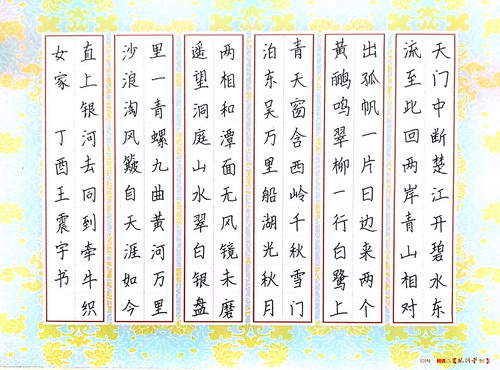 天门中断楚江开碧水东
流至此回两岸青山相对
出孤帆一片日边来两个
黄鹂鸣翠柳一行白鹭上
青天窗含西岭千秋雪门
泊东吴万里船湖光秋月
两相和潭面无风镜未磨
遥望洞庭山水翠白银盘
里一青螺九曲黄河万里
沙浪淘风簸自天涯如今
直上银河去同到牵牛织
女家 丁酉王震宇书